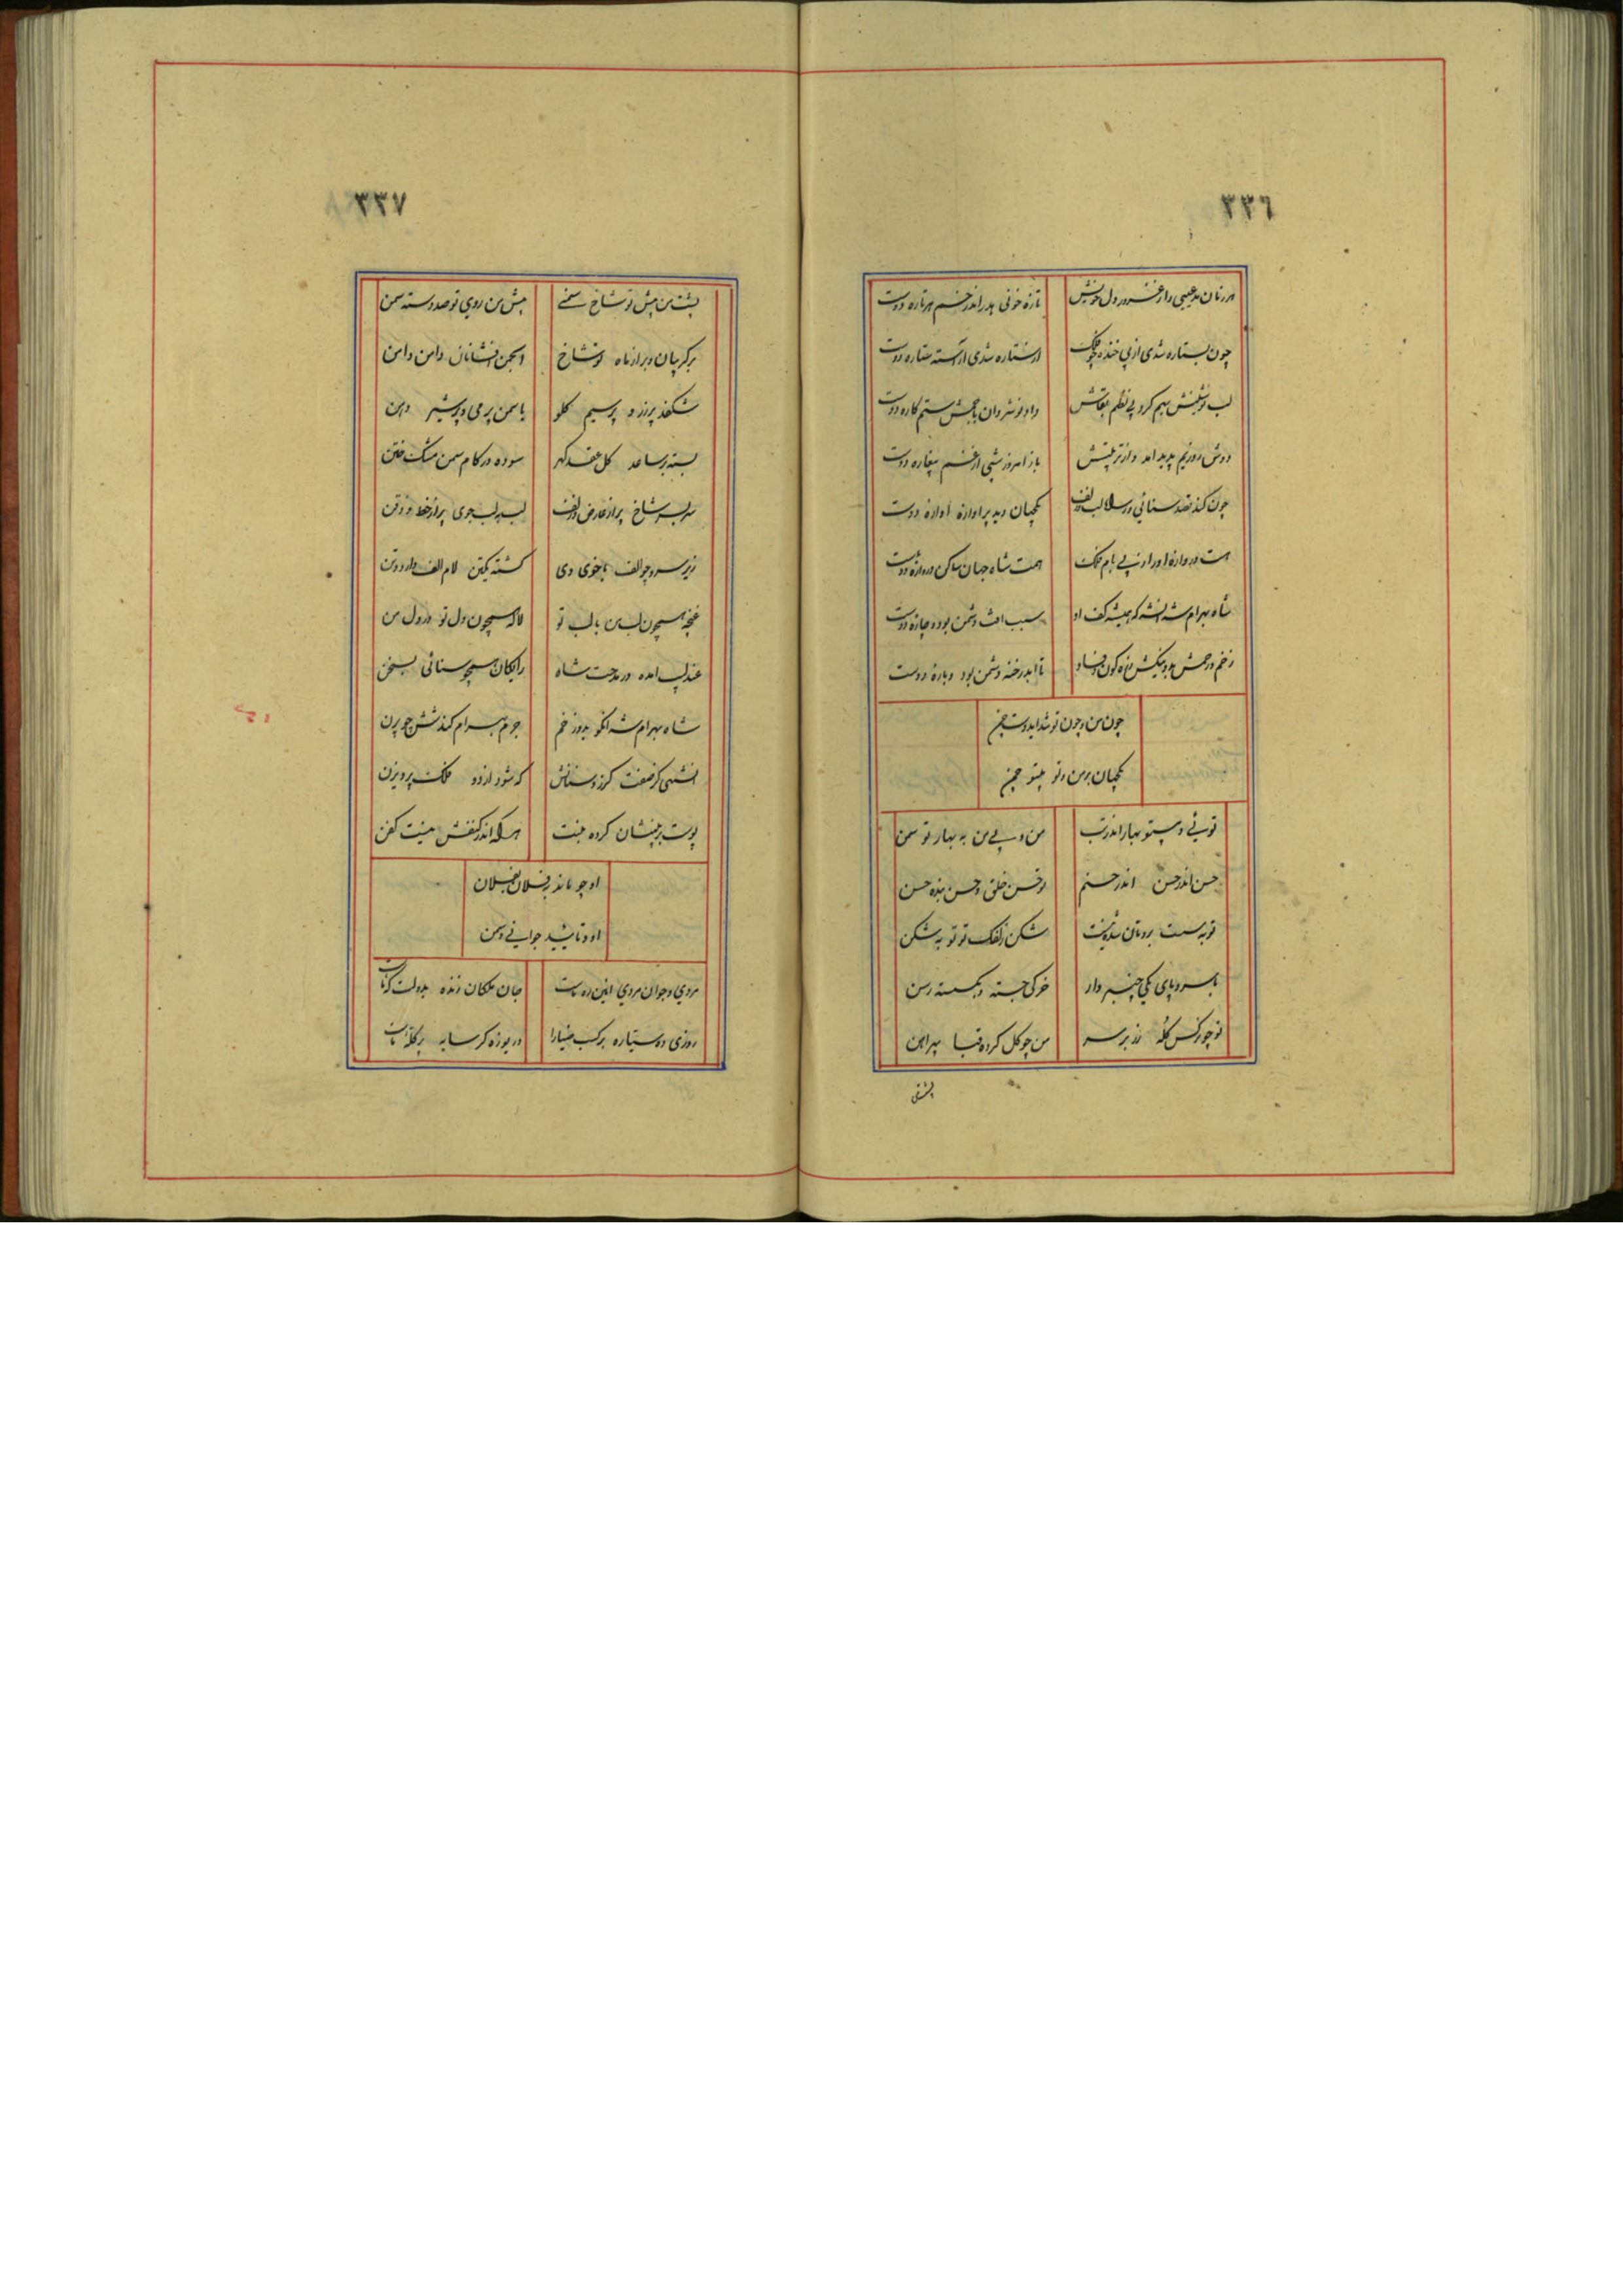 ٣٣٦
هر زمان مدعیی را ز غرور دل خویش تازه خونی هدر اندر خم هر تاره اوست
چون ستاره شدی از پی خنده چو فلک از ستاره شدی آراسته ستاره دوست
لب نوشینش بهم کرد پی نظم بقاش داد نوشروان با چشم ستم کاره دوست
دوش روزیم پدید امد و از تربیتش باز امروز شبی از غم بیغاره دوست
چون کند قصد سنائی ور لب و زلف یکجهان دید پر اوازه اواره دوست
هست دروازه او را از پی بام فلک همت شاه جهان ساکن دروازه دوست
شاه بهرام شه انشه که همیشه کف او سبب افت دشمن بود و چاره دوست
زخم و رحمش بد و نیکش ز ره کون و فساد تا ابد رخنه دشمن بود و باره دوست
چون من و چون تو شد ایدوست چمن
یکجهان بر من و تو بیتو چمن
تو بی و بیتو بهار اندر تب من و بی من به بهار تو سمن
حسن اندر حسن اندر حسنم تو حسن خلق و حسن بنده حسن
توبه سست بروتان شده نیست شکن زلفک تو توبه شکن
با سر و پای یکی چنبر دار خر کی جسته و بگسسته رسن
تو چو نرکس کله زر بر سر من چو کل کرده قبا پیراهن
پشت من
٣٣٧
پشت من پیش تو شاخ سمنی پیش من روی تو صد دسته سمن
بر کریبان و بر از ماه تو شاخ انجمن افشانان دامن دامن
شکفد پر زر و پر سیم کلو یا سمن پر می و پر شیر دهن
بسته بر ساعد کل عقد کهر سوده در کام سمن مشک ختن
سر بسر شاخ پر از عارض و زلف لب بر لب جوی پر از خط و ذقن
زیر سرو چو الف با خوی وی کشته یکتن لام الف وار دو تن
غنچه همچون لب من با لب تو لاله همچون دل تو در دل من
عندلیب امده در مدحت شاه رایکان همچو سنائی بسخن
شاه بهرام شه انکو بدو زخم جرم بهرام کند شش چو پرن
انشهی کز صفت کرز و سنانش که شود ارزد و فلک پرویزن
پوست بر تنشان کرده هست هر که اندر کنفش نیست کفن
او چو ماند بر فلان بفلان
او و تایید جوانی و سمن
مردی و جوانمردی ایین ره ماست جان ملکان زنده بدولت کر ماست
روزی ده سیاره بر کسب ضیا را دریوزه کر سایه بر کله ماست